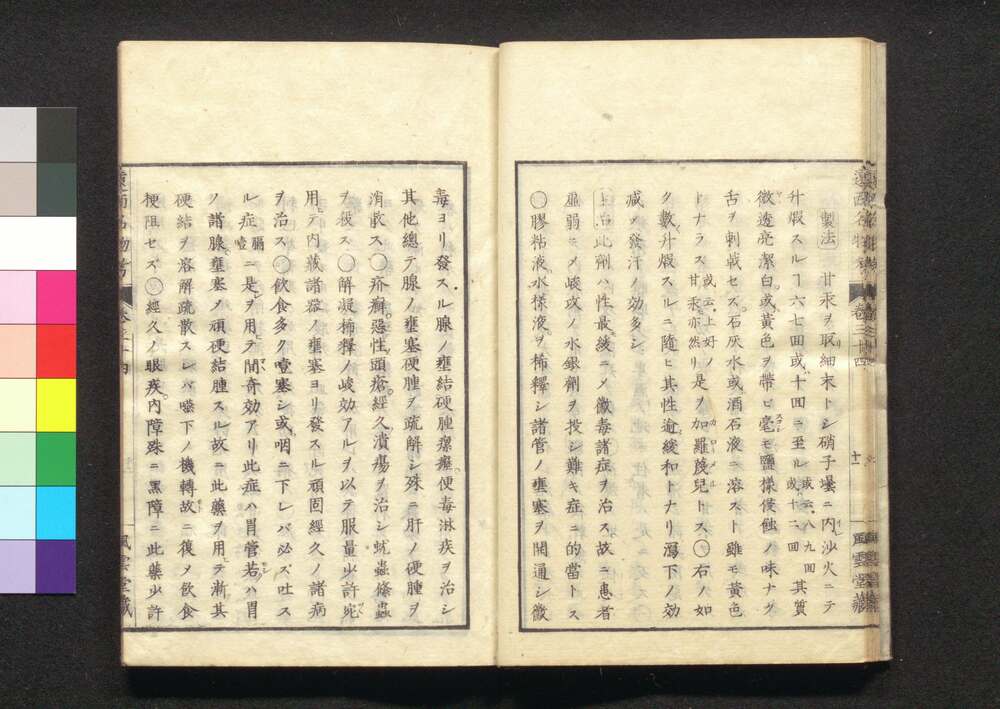 製法 甘汞ヲ取細末トシ硝子壜ニ内沙火ニテ
升煆スルヿ六七回或ハ十回ニ至ル 或云八九回或十二回 其質
微透亮潔白或黄色ヲ帶ヒ毫モ鹽樣侵蝕ノ味ナク
舌ヲ刺戟セズ石灰水或酒石液ニ溶スト雖モ黄色
トナラス 或云上好ノ甘汞亦然リ 是ヲ加羅蔑兒トス〇右ノ如
ク數升煆スルニ隨ヒ其性逾緩和トナリ瀉下ノ効
減ソ發汗ノ効多シ
主治此劑ハ性最緩ニメ黴毒諸症ヲ治ス故ニ患者
虚弱ニメ峻攻ノ水銀劑ヲ投シ難キ症ニ的當トス
〇膠粘液水樣液ヲ稀釋シ諸管ノ壅塞ヲ開通シ黴
遠西名物考 卷三十四 十一 風雲堂藏
毒ヨリ發スル腺ノ壅結硬腫瘰癧便毒淋疾ヲ治シ
其他總テ腺ノ壅塞硬腫ヲ疏解シ殊ニ肝ノ硬腫ヲ
消散ス〇疥癬惡性頭瘡經久潰瘍ヲ治シ蚘蟲條蟲
ヲ殺ス〇解凝稀釋ノ峻効アルヲ以テ服量少許宛
用テ内藏諸器ノ壅塞ヨリ發スル頑固經久ノ諸病
ヲ治ス〇飲食多ク噎塞シ或咽ニ下レバ必ズ吐ス
ル症 膈噎 ニ是ヲ用テ間奇効アリ此症ハ胃管若ハ胃
ノ諸腺壅塞ノ頑硬結腫スル故ニ此藥ヲ用テ漸其
硬結ヲ溶解疏散スレバ嚥下ノ機轉故ニ復メ飲食
梗阻セズ〇經久ノ眼疾内障殊ニ黒障ニ此藥少許
遠西名物考 風雲堂藏